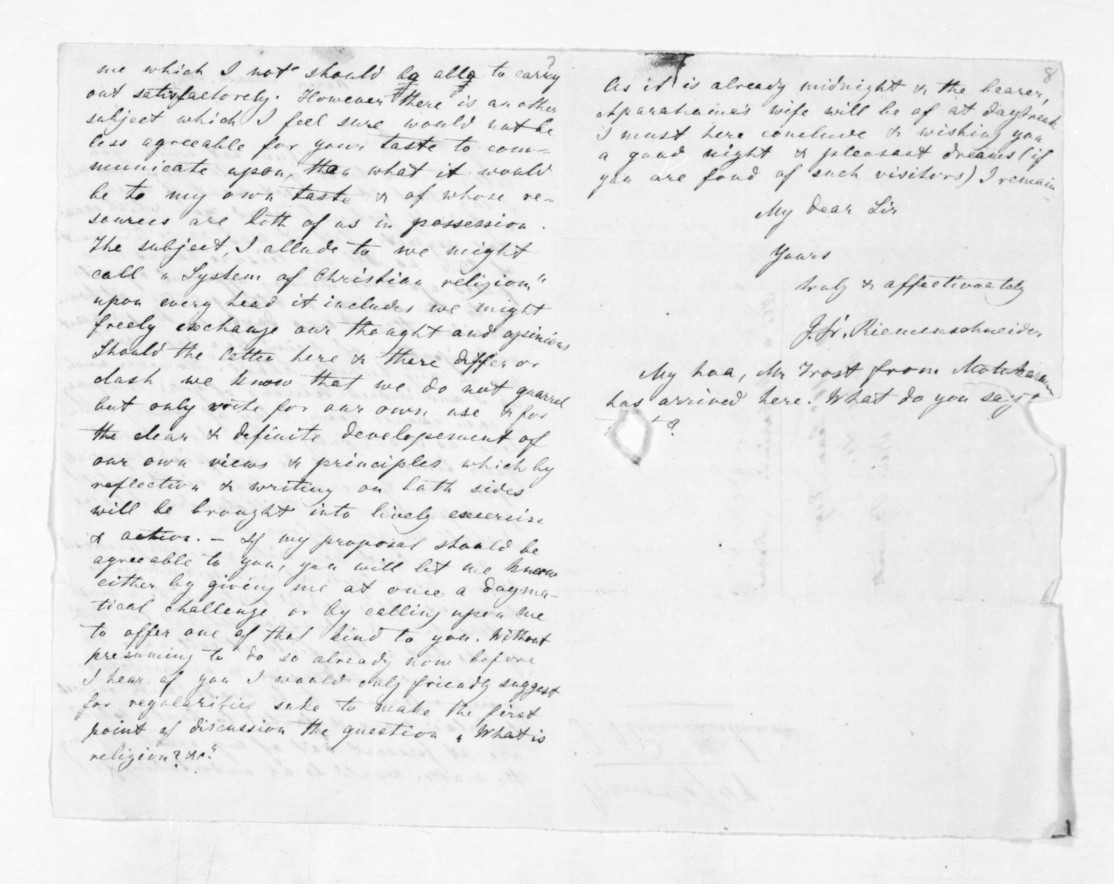 7
me which I not should be able to carry
out satisfactorely. However there is another
subject which I feel sure would not be
less agreeable for your taste to com-
municate upon, than what it would
be to my own taste & of whose re-
sources are both of us in possession.
The subject, I allude to we might
call "System of Christian religion"
upon every head it includes we might
freely exchange our thought and opinions
Should the latter here & there differ or
clash we know that we do not quarrel
but only write for our own use & for
the clear & definite developement of
our own views & principles which by
reflection & writing on both sides
will be brought into lively excercise
& action. – If my proposal should be
agreeable to you, you will let me know
either by giving me at once a dogma-
tical challenge or by calling upon me
to offer one of that kind to you. Without
presuming to do so already now before
I hear of you I would only friendly suggest
for regularities sake to make the first
point of discussion the question "What is
religion? &c"
8
As it is already midnight & the bearer,
Aparahaina's wife will be of at daybreak
I must here conclude & wishing you
a good night & pleasant dreams (if
you are fond of such visitors) I remain
My dear Sir
Yours
truly & affectionately
J. Fr. Riemenschneider
My hoa, Mr Trost from
has arrived here. What do you say to